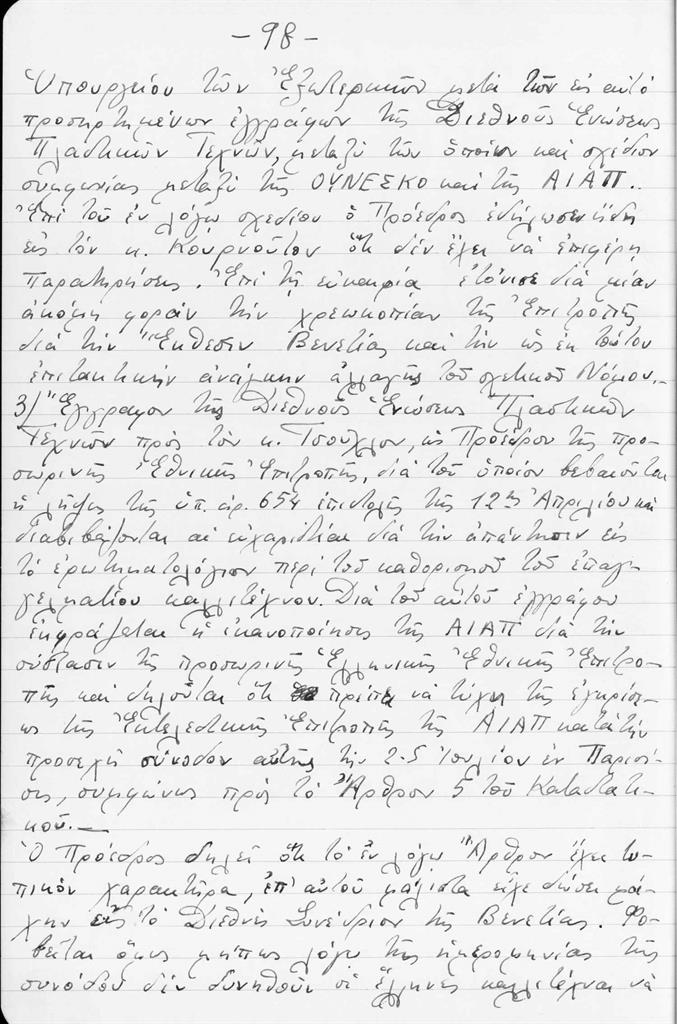 - 98 -
Ὑπουργείου τῶν Ἐξωτερικῶν μετά τῶν εἰς αὐτό
προσηρτημένων ἐγγράφων τῆς Διεθνοῦς Ἑνώσεως
Πλαστικῶν Τεχνῶν, μεταξύ τῶν ὁποίων καί σχέδιον
συμφωνίας μεταξύ τῆς ΟΥΝΕΣΚΟ καί τῆς ΑΙΑΠ..
Ἐπί τοῦ ἐν λόγῳ σχεδίου ὁ Πρόεδρος ἐδήλωσεν ἤδη
εἰς τόν κ. Κουρνοῦτον ὅτι δέν ἔχει νά ἐπιφέρῃ
παρατηρήσεις. Ἐπί τῇ εὐκαιρίᾳ ἐτόνισε διά μίαν
ἀκόμη φοράν τήν χρεωκοπίαν τῆς Ἐπιτροπῆς
διά τήν Ἔκθεσιν Βενετίας καί τήν ὡς ἐκ τούτου
ἐπιτακτικήν ἀνάγκην ἀλλαγῆς τοῦ σχετικοῦ Νόμου.-
3) Ἔγγραφον τῆς Διεθνοῦς Ἑνώσεως Πλαστικῶν
Τεχνῶν πρός τόν κ. Τσούχλον, ὡς Πρόεδρον τῆς προ-
σωρινῆς Ἐθνικῆς Ἐπιτροπῆς, διά τοῦ ὁποίου βεβαιοῦται
ἡ λῆψις τῆς ὑπ. ἀρ. 654 ἐπιστολῆς τῆς 12ης Ἀπριλίου καί
διαβιβάζονται αἱ εὐχαριστίαι διά τήν ἀπάντησιν εἰς
τό ἐρωτηματολόγιον περί τοῦ καθορισμοῦ τοῦ ἐπαγ-
γελματίου καλλιτέχνου. Διά τοῦ αὐτοῦ ἐγγράφου
ἐκφράζεται ἡ ἱκανοποίησις τῆς ΑΙΑΠ διά τήν
σύστασιν τῆς προσωρινῆς Ἑλληνικῆς Ἐθνικῆς Ἐπιτρο-
πῆς καί δηλοῦται ὅτι πρέπει νά τύχῃ τῆς ἐγκρίσε-
ως τῆς Ἐκτελεστικῆς Ἐπιτροπῆς τῆς ΑΙΑΠ κατά τήν
προσεχῆ σύνοδον αὐτῆς τήν 2-5 Ἰουλίου ἐν Παρισί-
οις, συμφώνως πρός τό Ἄρθρον 5 τοῦ Καταστατι-
κοῦ.-
Ὁ Πρόεδρος δηλεῖ ὅτι τό ἐν λόγῳ Ἄρθρον ἔχει τυ-
πικόν χαρακτῆρα, ἐπ' αὐτοῦ μάλιστα εἶχε δώσει μά-
χην εἰς τό Διεθνές Συνέδριον τῆς Βενετίας. Φο-
βεῖται ὅμως μήπως λόγῳ τῆς ἡμερομηνίας τῆς
συνόδου δέν δυνηθοῦν οἱ Ἕλληνες καλλιτέχναι νά